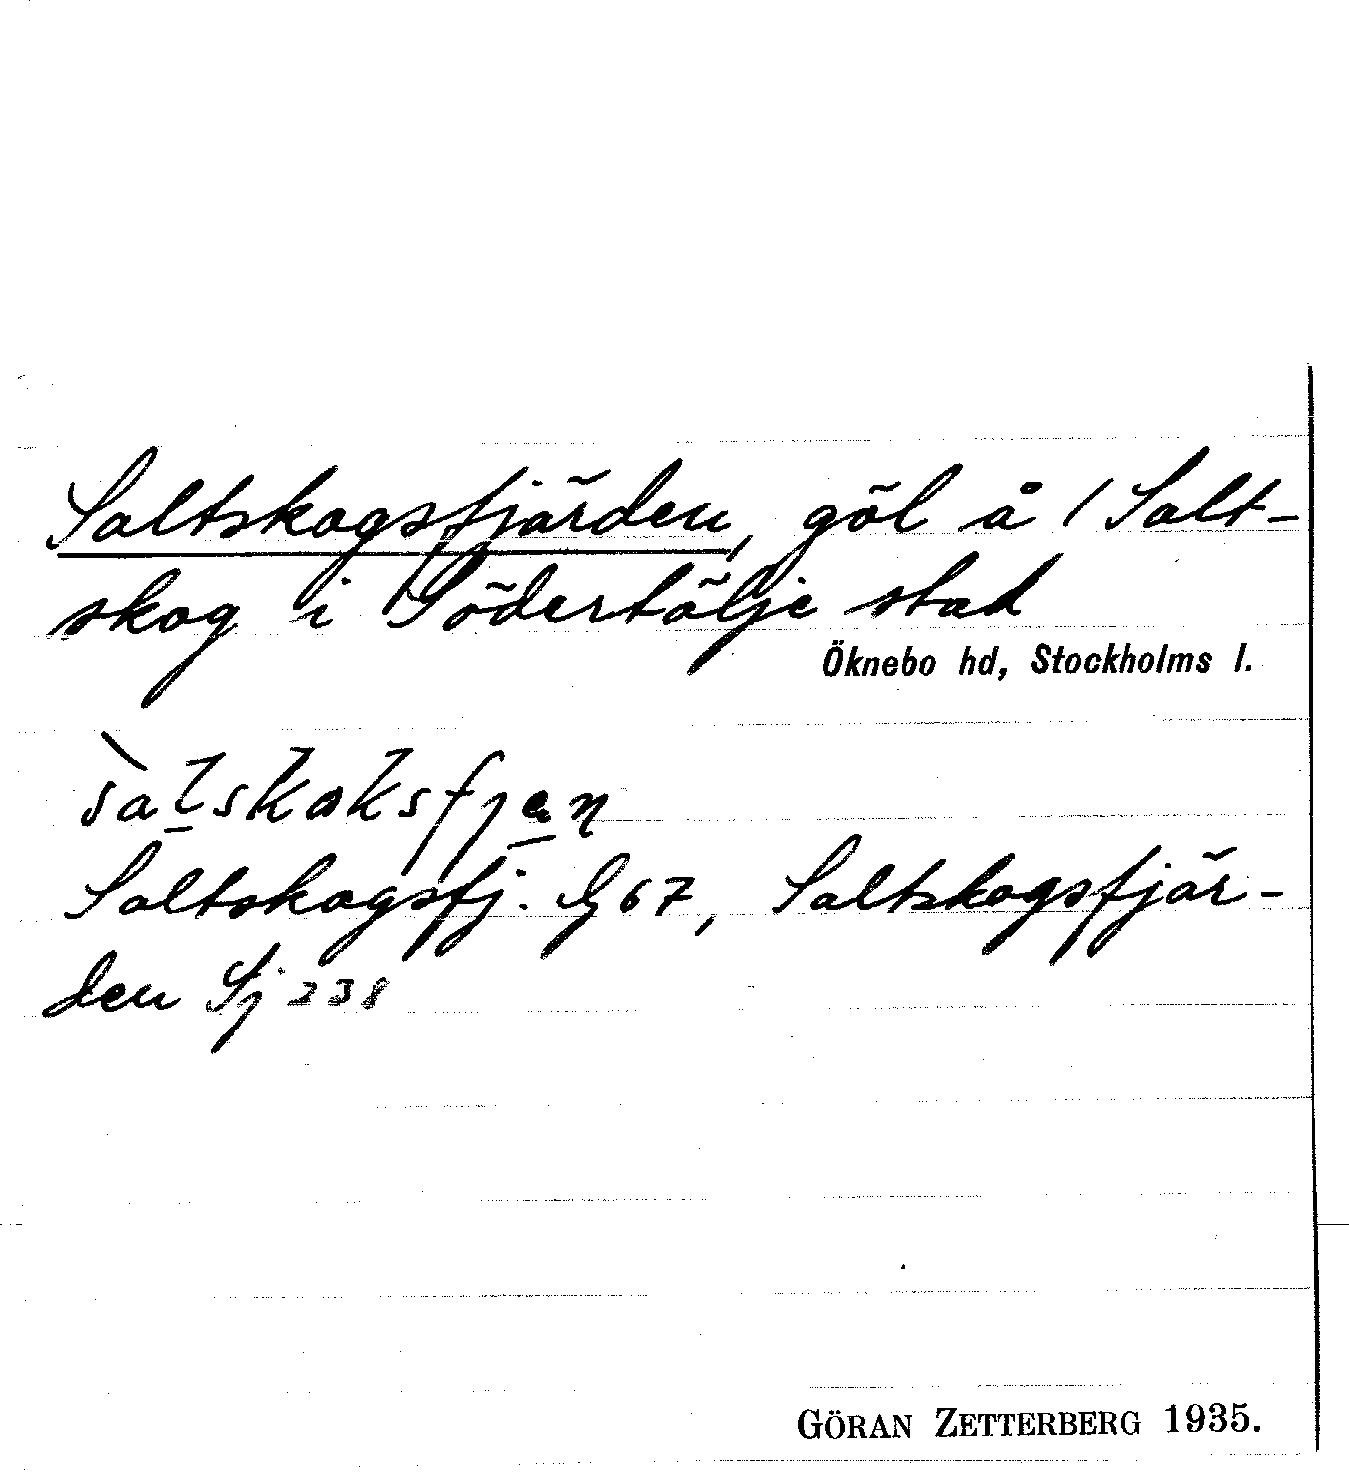 Saltskogsfjärden, göl å / Salt-
skog i Södertälje stad
Öknebo hd, Stockholms l.
Saltskogsfj. G 67, Saltskogsfjär-
den Sj 238
GÖRAN ZETTERBERG 1935.